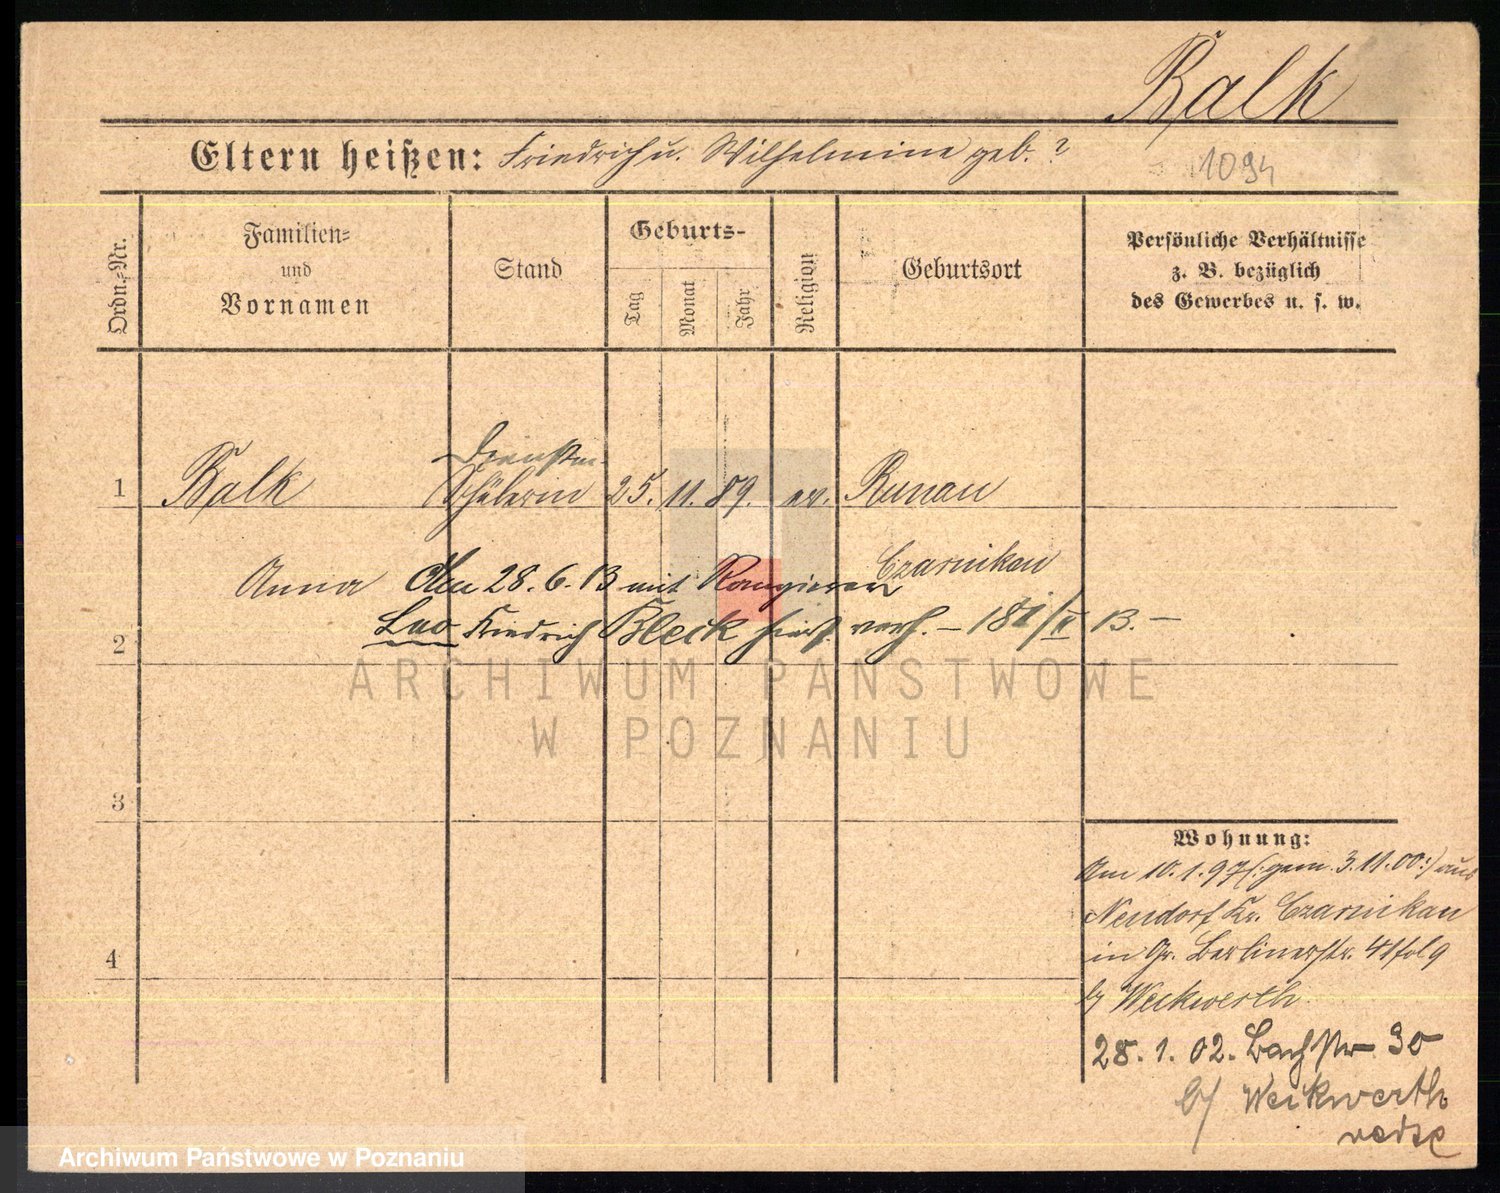 Balk
Eltern heißen: Friedrich u. Wilhelmine geb. ?
1094
Ordn.-Nr.
Familien-
und
Vornamen
Stand
Geburts-
Tag
Monat
Jahr
Religion
Geburtsort
Persönliche Verhältnisse
z. B. bezüglich
des Gewerbes u. s. w.
Dienstm.
1 Balk Schülerin 25. 11. 89. ev. Runau
Czarnikau
Anna Am 28. 6. 13 mit Rangierer
2 Leo Friedrich Bleck hierf. verh. – 181/V 13. –
ARCHIWUM PAŃSTWOWE
W POZNANIU
3
Wohnung:
Am 10. 1. 97 (: gem. 3. 11. 00 :) aus
Neudorf Kr. Czarnikau
in Gr. Berlinerstr. 41 fol 9
4
b/ Weckwerth
28. 1. 02. Bachstr 30
b/ Weckwerth
Archiwum Państwowe w Poznaniu